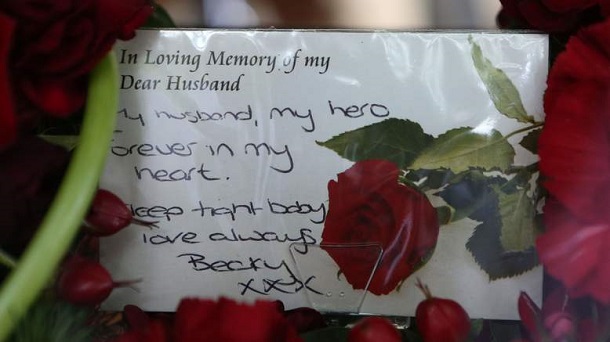 In Loving Memory of my
Dear Husband
My husband, my hero
Forever in my
heart.
Sleep tight baby
love always
Becky
xxxx